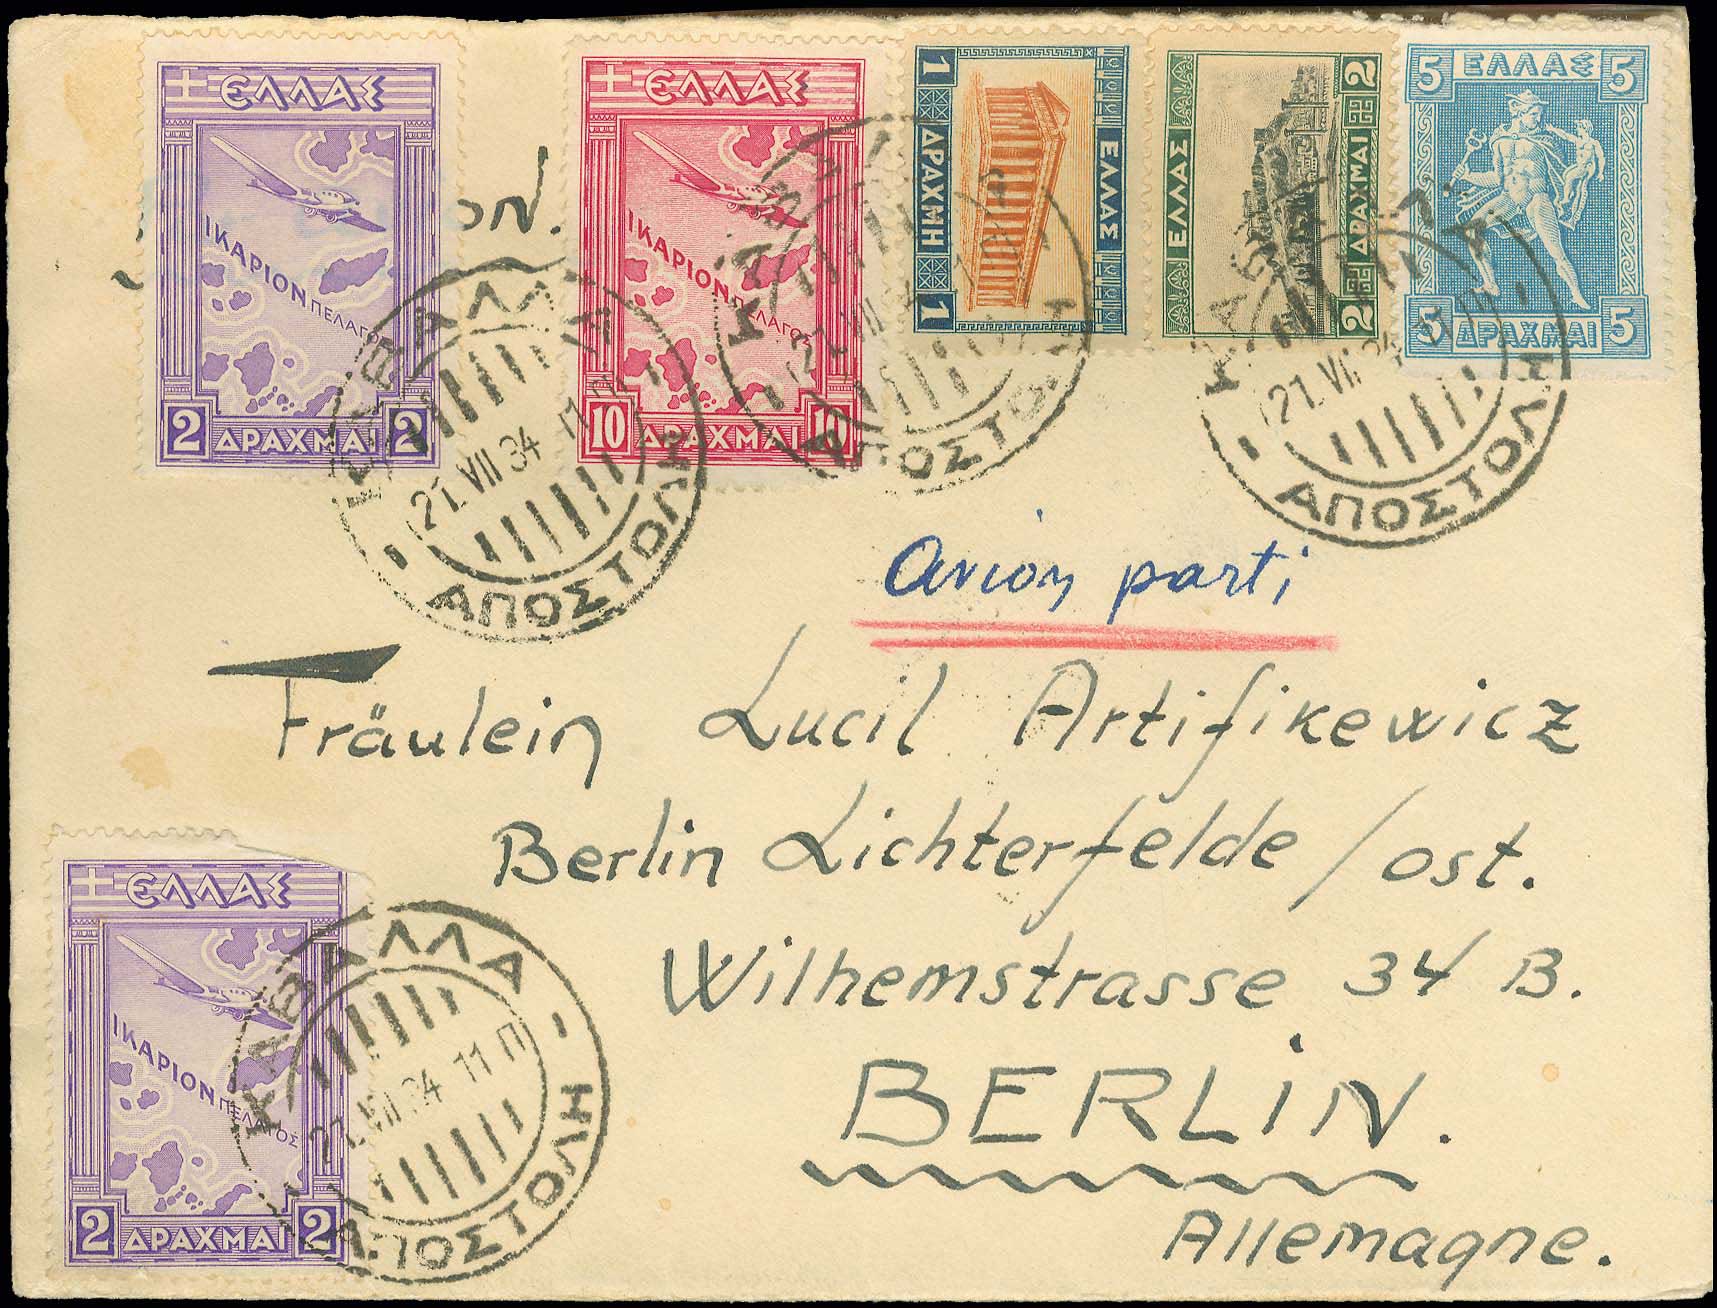 ΕΛΛΑΣ
ΙΚΑΡΙΟΝ ΠΕΛΑΓΟΣ
2 ΔΡΑΧΜΑΙ 2
ΕΛΛΑΣ
ΙΚΑΡΙΟΝ ΠΕΛΑΓΟΣ
10 ΔΡΑΧΜΑΙ 10
1 ΔΡΑΧΜΗ 1
ΕΛΛΑΣ
ΕΛΛΑΣ
2 ΔΡΑΧΜΑΙ 2
5 ΕΛΛΑΣ 5
5 ΔΡΑΧΜΑΙ 5
ΚΑΒΑΛΛΑ
21. VII 34
ΑΠΟΣΤΟΛΗ
ΑΠΟΣΤΟΛΗ
ΚΑΒΑΛΛΑ
21. VII 34
ΑΠΟΣΤΟΛΗ
avion parti
Fräulein Lucil Artifikewicz
Berlin Lichterfelde / ost.
Wilhemstrasse 34 B.
BERLIN.
Allemagne.
ΕΛΛΑΣ
ΙΚΑΡΙΟΝ ΠΕΛΑΓΟΣ
2 ΔΡΑΧΜΑΙ 2
ΚΑΒΑΛΛΑ
21. VII 34 11 Π
ΑΠΟΣΤΟΛΗ